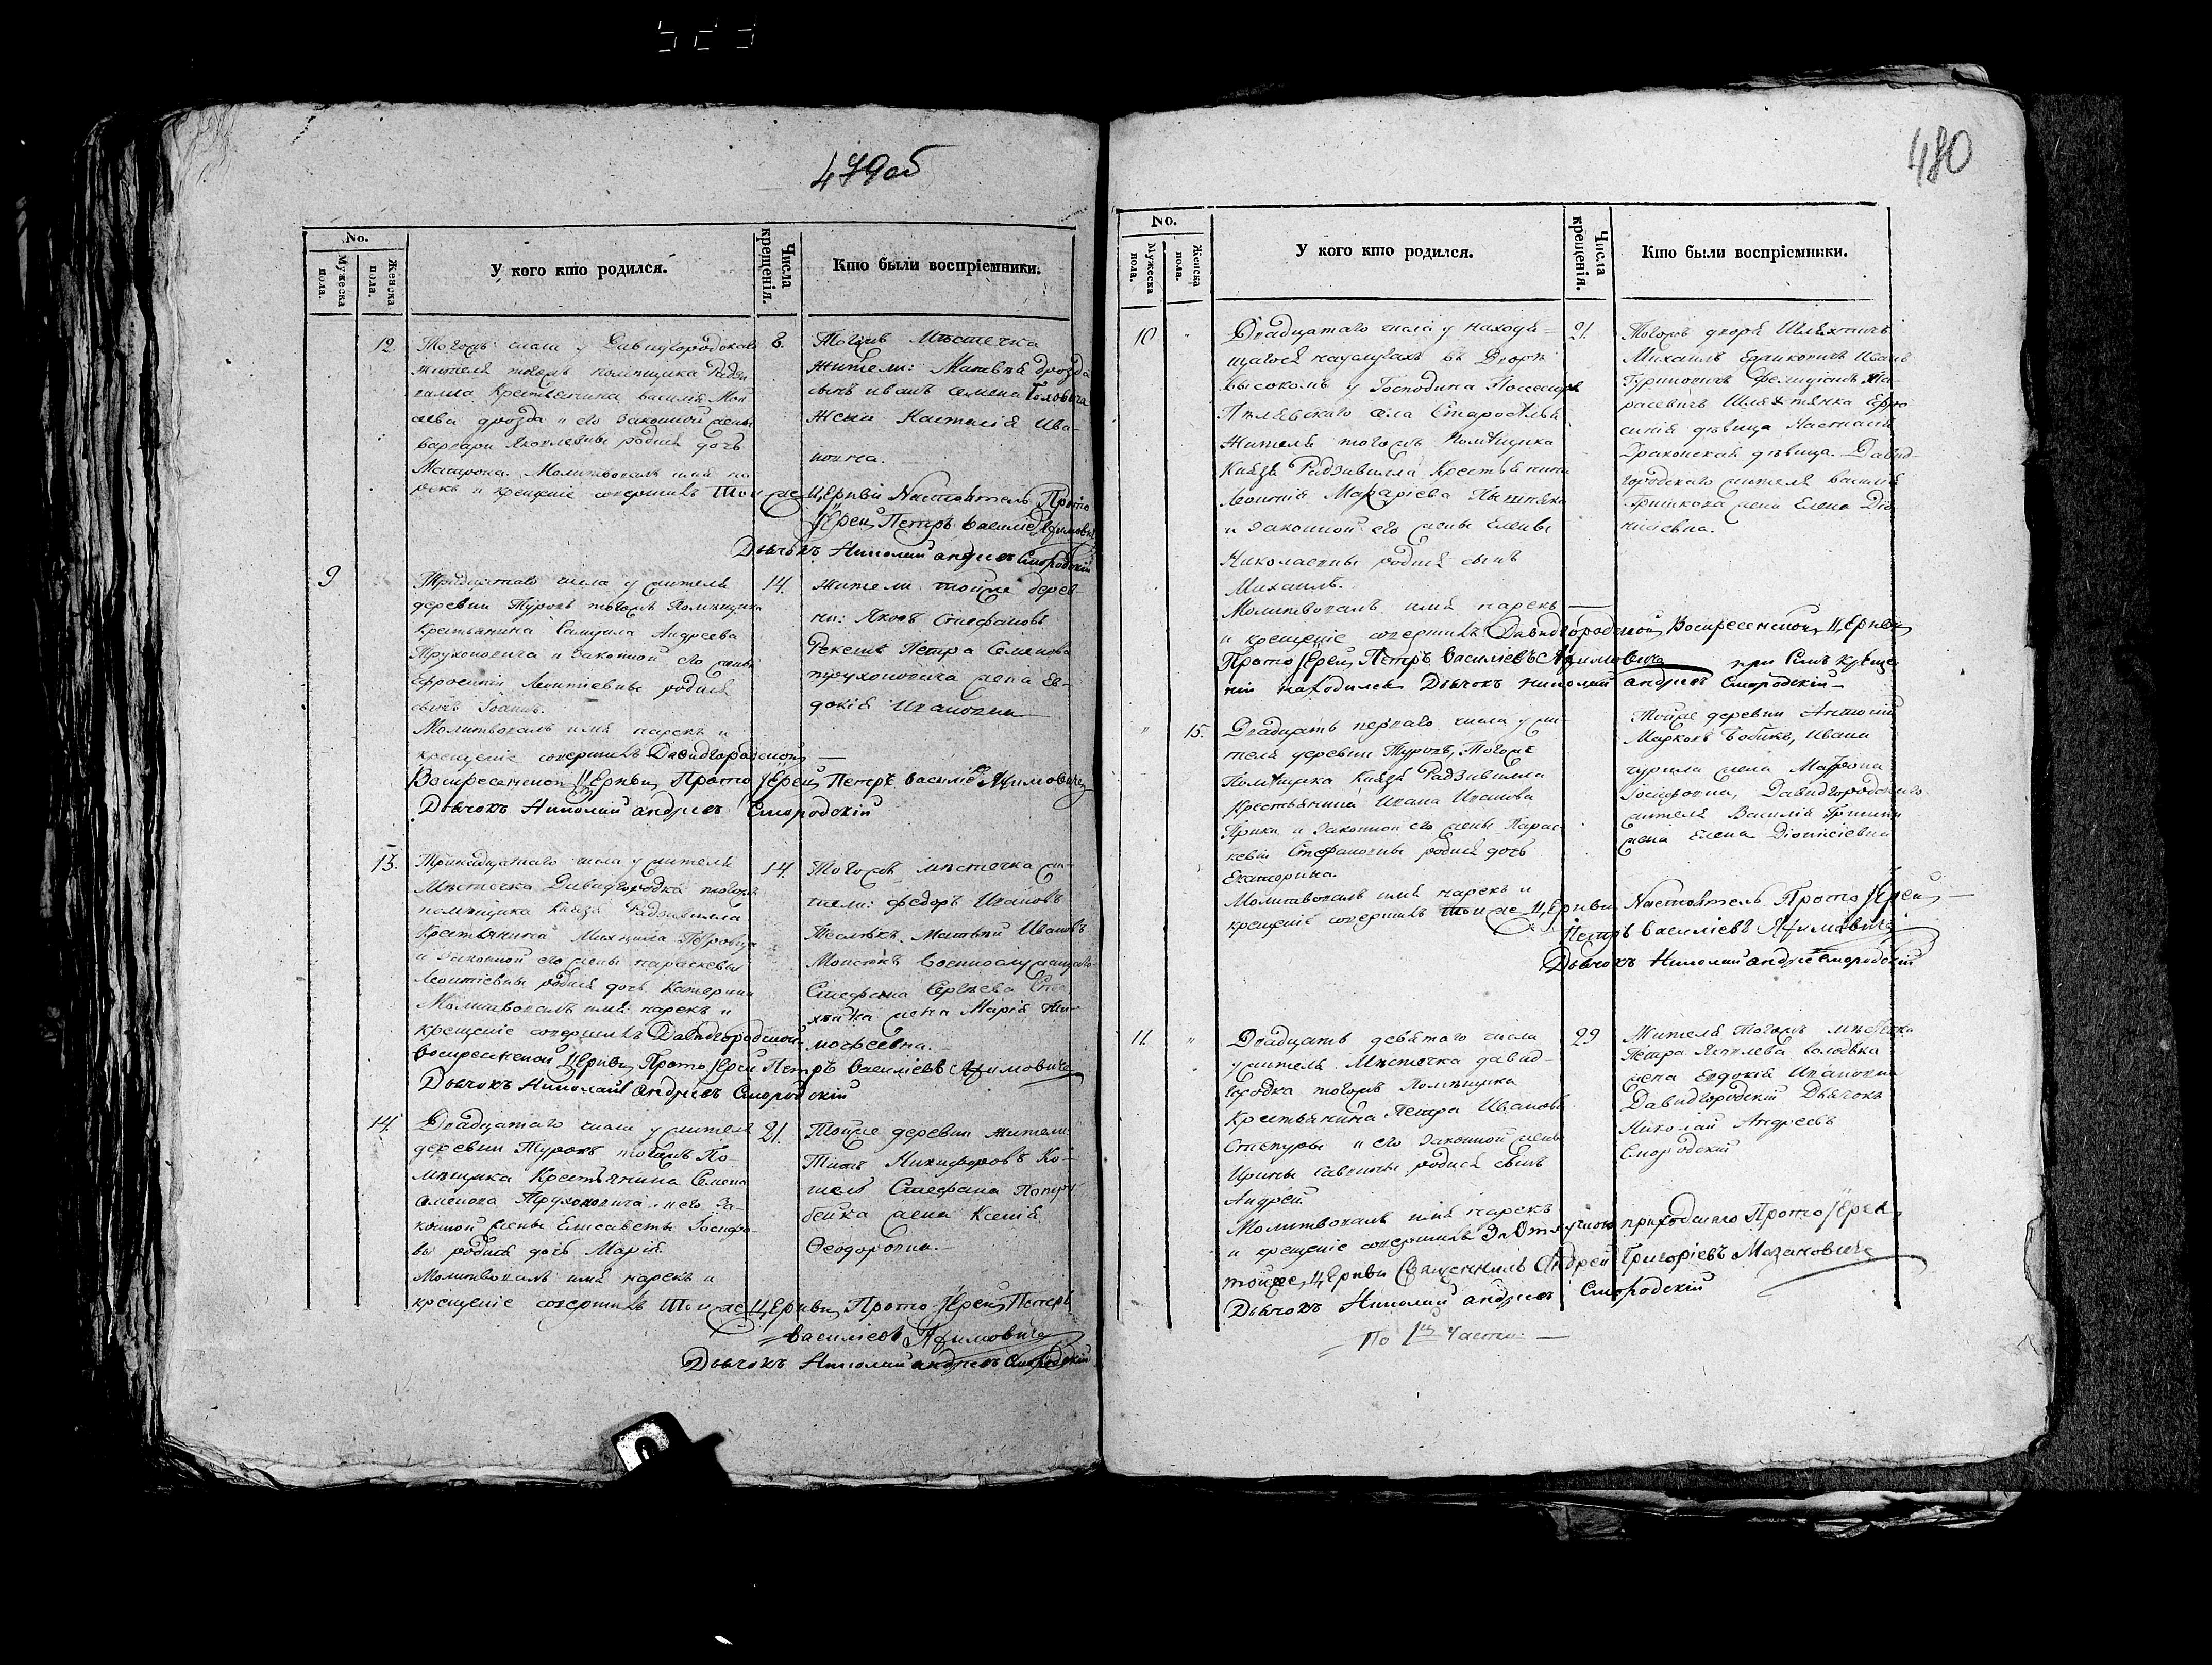 479об
No.
Мужеска пола.
Женска пола.
У кого кто родился.
Числа крещенія.
Кто были воспріемники.
12.
Тогожъ числа у Давидгородскаго
жителя тогожъ помѣщика Радзи
вилла крестьянина василія Мои
сѣева дрозда и его законной жены
варвары Яковлевны родися дочь
Матрона. Молитвовалъ имя на
рекъ и крещеніе совершилъ Той же Церкви Настоятель Прото
Іерей Петръ василіевъ Ячимовичъ
Дьячокъ Николай андреевъ Смородскій
8.
Тогожъ Мѣстечка
жители: Матвѣя дрозда
сынъ иванъ семена Головича
жена Настасія Ива-
новна.
9
Тридцатаго числа у жителя
деревни Туровъ тогожъ Помѣщика
Крестьянина Самуила Андреева
Трухоновича и законной его жены
Ефросиніи Леонтіевны родися
сынъ Іоаннъ.
Молитвовалъ имя нарекъ и
крещеніе совершилъ Давидгородской
Воскресенской Церкви Прото Іерей Петръ василіевъ Ячимовичъ
Дьячокъ Николай андреевъ Смородскій
14.
жители тойже дерев-
ни: Яковъ Стефановъ
Петра Семенова
трухоновича жена Ев-
докія Ивановна
13.
Тринадцатаго числа у жителя
Мѣстечка Давидгородка тогожъ
помѣщика Князя Радзивилла
Крестьянина Михаила Петровца
и законной его жены параскевіи
Леонтіевны родися дочь Катерина
Молитвовалъ имя нарекъ и
крещеніе совершилъ Давидгородской
воскресенской Церкви Прото Іерей Петръ василіевъ Ячимовичъ
Дьячокъ Николай андреевъ Смородскій
14.
Тогожъ мѣстечка жи-
тели: федоръ Ивановъ
Матвѣй Ивановъ
Военнослужащаго
Стефана Сергѣева
жена Марія Ти-
мофеевна.
14
Двадцатаго числа у жителя
деревни Туровъ тогожъ По-
мѣщика Крестьянина Семена
семенова Трухоновича и его за-
конной жены Елисаветы Іосифо-
вы родися дочь Марія
Молитвовалъ имя нарекъ и
крещеніе совершилъ Той же Церкви Прото Іерей Петръ
василіевъ Ячимовичъ
Дьячокъ Николай андреевъ Смородскій
21.
Тойже деревни жители:
Титъ Никифоровъ Ко-
шель Стефана
жена Ксенія
Ѳеодоровна.
480
No.
Мужеска пола.
Женска пола.
У кого кто родился.
Числа крещенія.
Кто были воспріемники.
10
Двадцатаго числа у находя-
щагося на услугахъ въ Дворѣ
высокомъ у Господина Поссесора
села Староселья
жителя тогожъ Помѣщика
Князя Радзивилла Крестьянина
Леонтія Макаріева
и законной его жены Елены
Николаевны родися сынъ
Михаилъ.
Молитвовалъ имя нарекъ
и крещеніе совершилъ Давидгородской Воскресенской Церкви
Прото Іерей Петръ василіевъ Ячимовичъ при Семъ креще
ніи находился Дьячокъ николай андреевъ Смородскій
21.
Тогожъ двора Шляхтичъ
Михаилъ Иванъ
Гуриновичъ Фелиціанъ Ка-
расевичъ Шляхтянка Ефро
синія дѣвица Настасія
дѣвица. Давид-
городскаго жителя василія
Гришкова жена Елена Діо
нисіевна.
15.
Двадцать перваго числа у жи-
теля деревни Туровъ, Тогоже
Помѣщика Князя Радзивилла
Крестьянина Ивана Иванова
и законной его жены Парас-
кевіи Стефановны родися дочь
Екатерина.
Молитвовалъ имя нарекъ и
крещеніе совершилъ Той же Церкви Настоятель Прото Іерей
Петръ василіевъ Ячимовичъ
Дьячокъ Николай андреевъ Смородскій
Тойже деревни Антоній
Марковъ Бобикъ, Ивана
жена Матрона
Іосифовна, Давидгородскаго
жителя Василія
жена Елена Діонисіевна
11.
Двадцать девятаго числа
у жителя Мѣстечка давид-
городка тогожъ Помѣщика
Крестьянина Петра Иванова
и его законной жены
Ирины Саввины родися сынъ
Андрей.
Молитвовалъ имя нарекъ
и крещеніе совершилъ За Отлучкою приходскаго Прото Іерея
тойже Церкви Священникъ Андрей Григоріевъ Мазановичъ
Дьячокъ Николай андреевъ Смородскій
29
Жителя тогожъ мѣстечка
Петра Яковлева
жена Евдокія Ивановна
Давидгородскій Дьячокъ
Николай Андреевъ
Смородскій
По 1й Части.